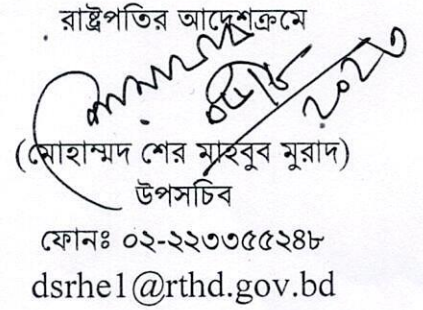 রাষ্ট্রপতির আদেশক্রমে
২০২৩
(মোহাম্মদ শের মাহবুব মুরাদ)
উপসচিব
ফোনঃ ০২-২২৩৩৫৫২৪৮
dsrhe1@rthd.gov.bd